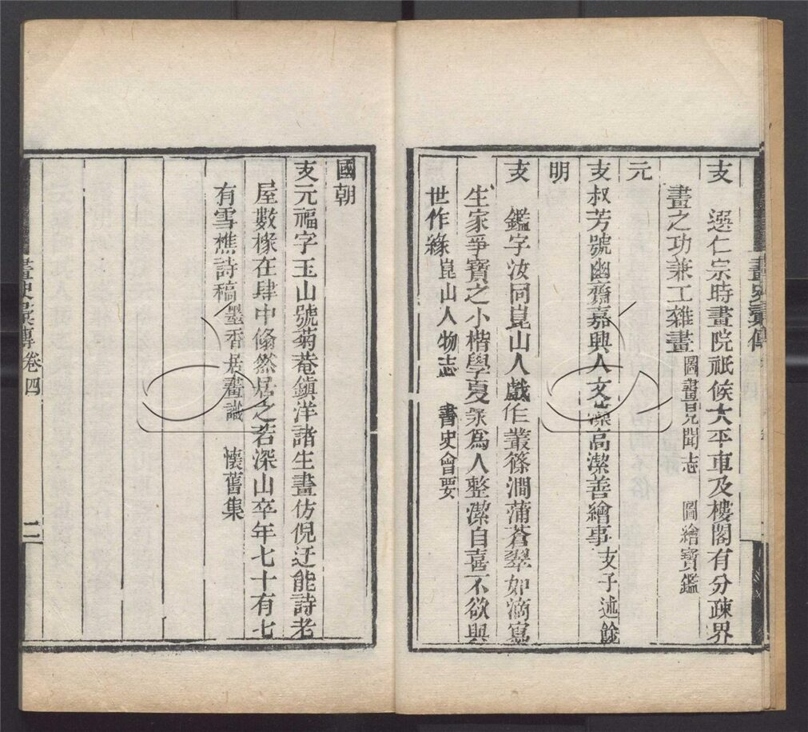 畫史彙傳
支 選仁宗時畫院祇候太平車及樓閣有分疎界
畫之功兼工雜畫圖畫見聞志 圖繪寶鑑
元
支叔芳號幽齋嘉興人文藻高潔善繪事支子述餘
明
支 鑑字汝同崑山人戲作叢篠澗蒲蒼翠如滴寫
生家爭寶之小楷學夏㫤為人整潔自喜不欲與
世作緣崑山人物志 書史會要
國朝
支元福字玉山號菊菴鎮洋諸生畫仿倪迂能詩老
屋數椽在肆中翛然居之若深山卒年七十有七
有雪樵詩稿墨香居畫識 懷舊集
畫史彙傳卷四
二